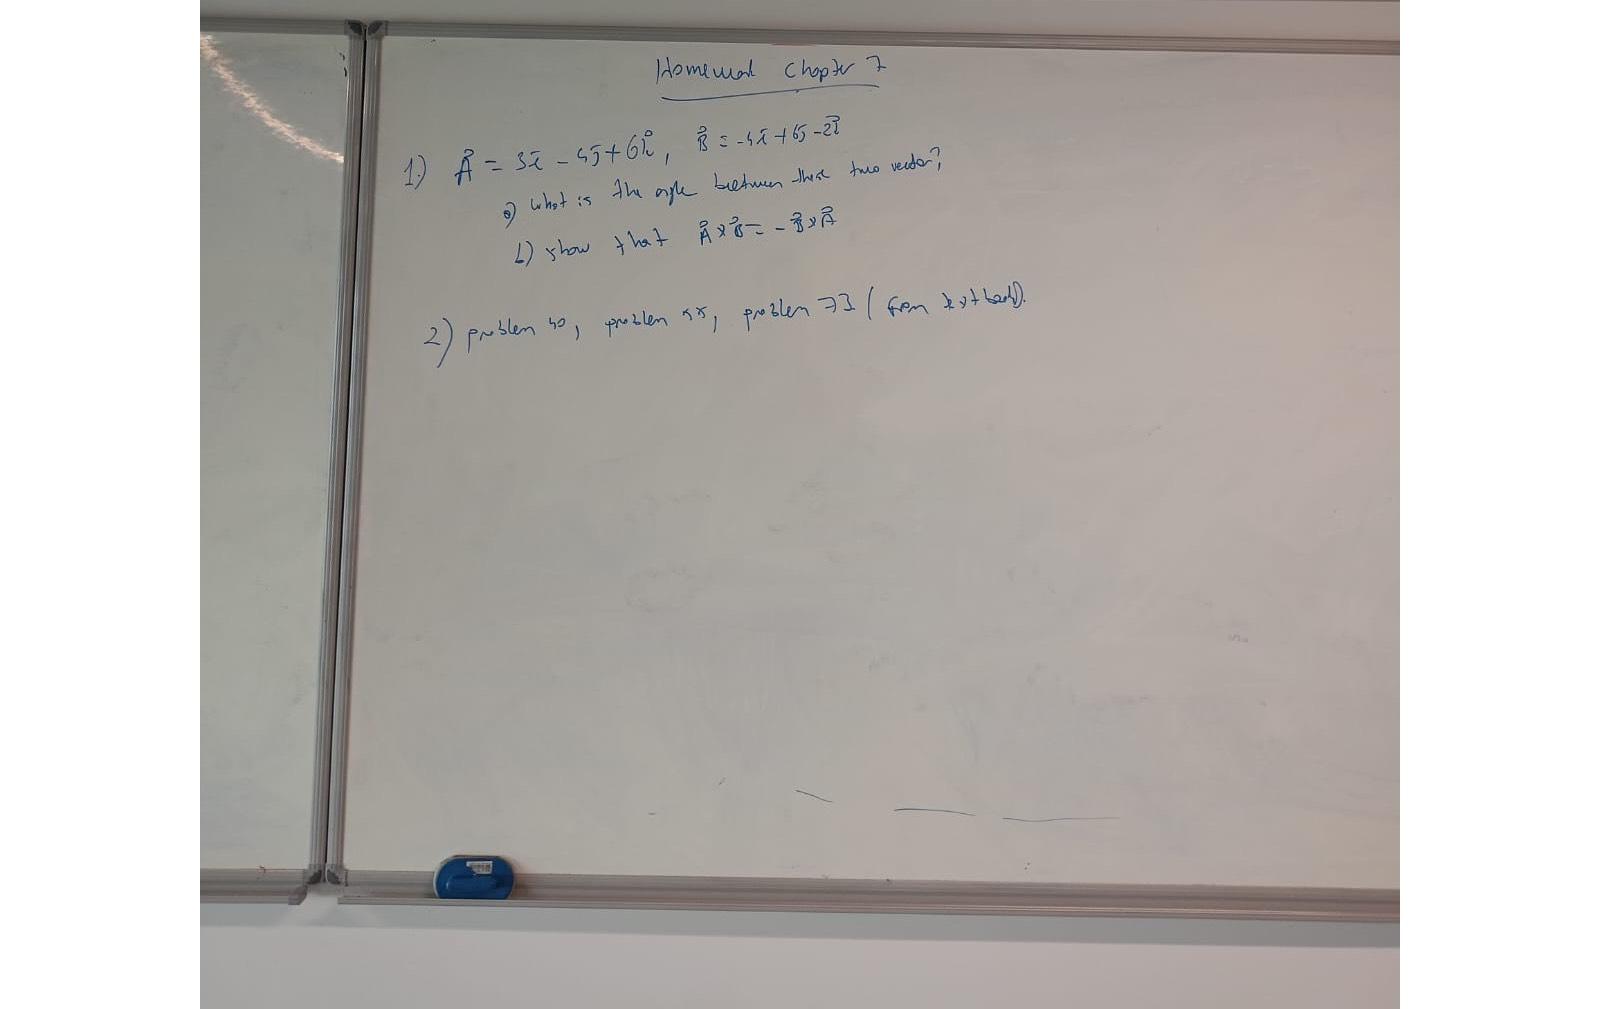 Homework Chapter 7
1.) A⃗ = 3i - 4j + 6k, B⃗ = -4i + 6j - 2k
a) what is the angle between these two vector?
b) show that A⃗ x B⃗ = - B⃗ x A⃗
2) problem 40, problem, problem 73 (from textbook).